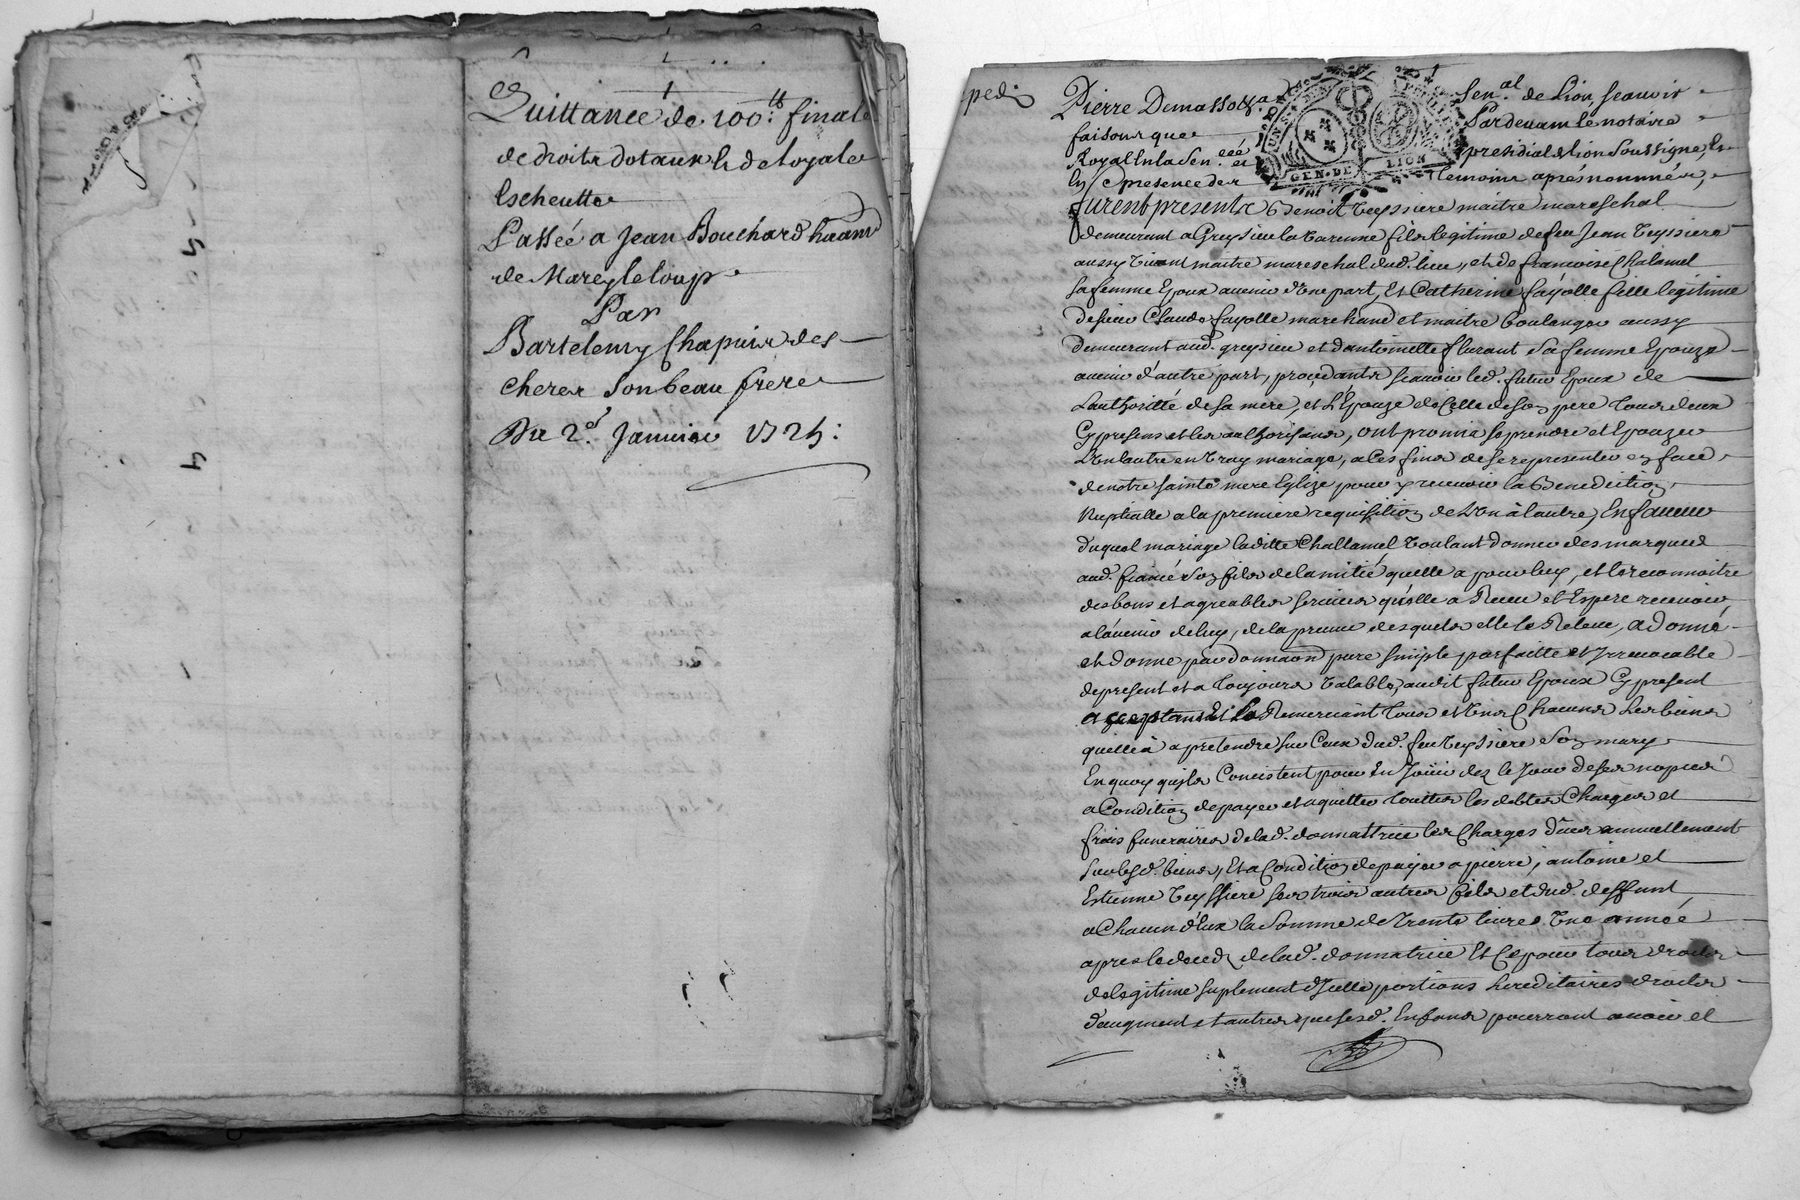 Quittance de 100ᵗᵗ: finale
de droits dotaux & de loyale
escheutte
Passée a Jean Bouchard
de Marcy le loup
Par
Bartelemy Chapuis des
cheres son beau frere
Du 2ᵉ. Janvier 1725:
expedié
Pierre Demassoz
Senᵃˡ de Lion, scavoir
faisons que
Pardevant le notaire
Royal en la Senᶜᵉᵉ et
presidial de Lion soussigné, &
GEN. DE LION
en presence des
temoins aprés nommés,
furent presents Benoit teyssiere maitre mareschal
demeurant a Greysieu la Varenne fils legitime de feu Jean teyssiere
aussy vivant maitre mareschal dud. lieu, et de francoise Chalamel
sa femme Epoux avenir d'une part, Et Catherine fayolle fille legitime
de sieur Claude fayolle marchand et maitre boulanger aussy
demeurant aud. greysieu et d'antoinette flurant sa femme Epouze
avenir d'autre part, procedants scavoir led. futur Epoux de
L'authorité de sa mere, et L'Epouze de Celle de son pere tous deux
Cy presens et les authorisans, ont promis se prendre et Epouzer
L'un l'autre en vray mariage, a ces fins de se representer en face
de notre sainte mere Eglize pour y recevoir la Benediction
Nuptialle a la premiere requisition de L'un à l'autre, En faveur
duquel mariage laditte Challamel voulant donner des marques
aud. fiancé son fils de l'amitié qu'elle a pour luy, et le reconnoitre
des bons et agreables services qu'elle a Receu et Espere recevoir
a l'avenir de luy, de la preuve desquels elle le Releve, a donné
et donne par donnaon pure simple parfaitte et Irrevocable
de present et a toujours valable, audit futur Epoux Cy present
acceptant Et la Remerciant tous et uns Chacuns les biens
qu'elle à a pretendre sur Ceux dud. feu teyssiere son mary
En quoy qu'ils Concistent pour En Joüir dez le Jour de ses nopces
a Condition de payer et aquitter touttes les debtes Charges et
frais funeraires de lad. donnattrice les Charges dües annuellement
sur lesd. biens, Et a Condition de payer a pierre, antoine et
Estienne teyssiere ses trois autres fils et dud. deffunt
a Chacun d'Eux la somme de trente livres une année
apres le decez de lad. donnatrice Et Ce pour tous droits
de legitime suplement d'Icelle portions hereditaires droits
d'augment et autres que sesd. Enfans pourront avoir et